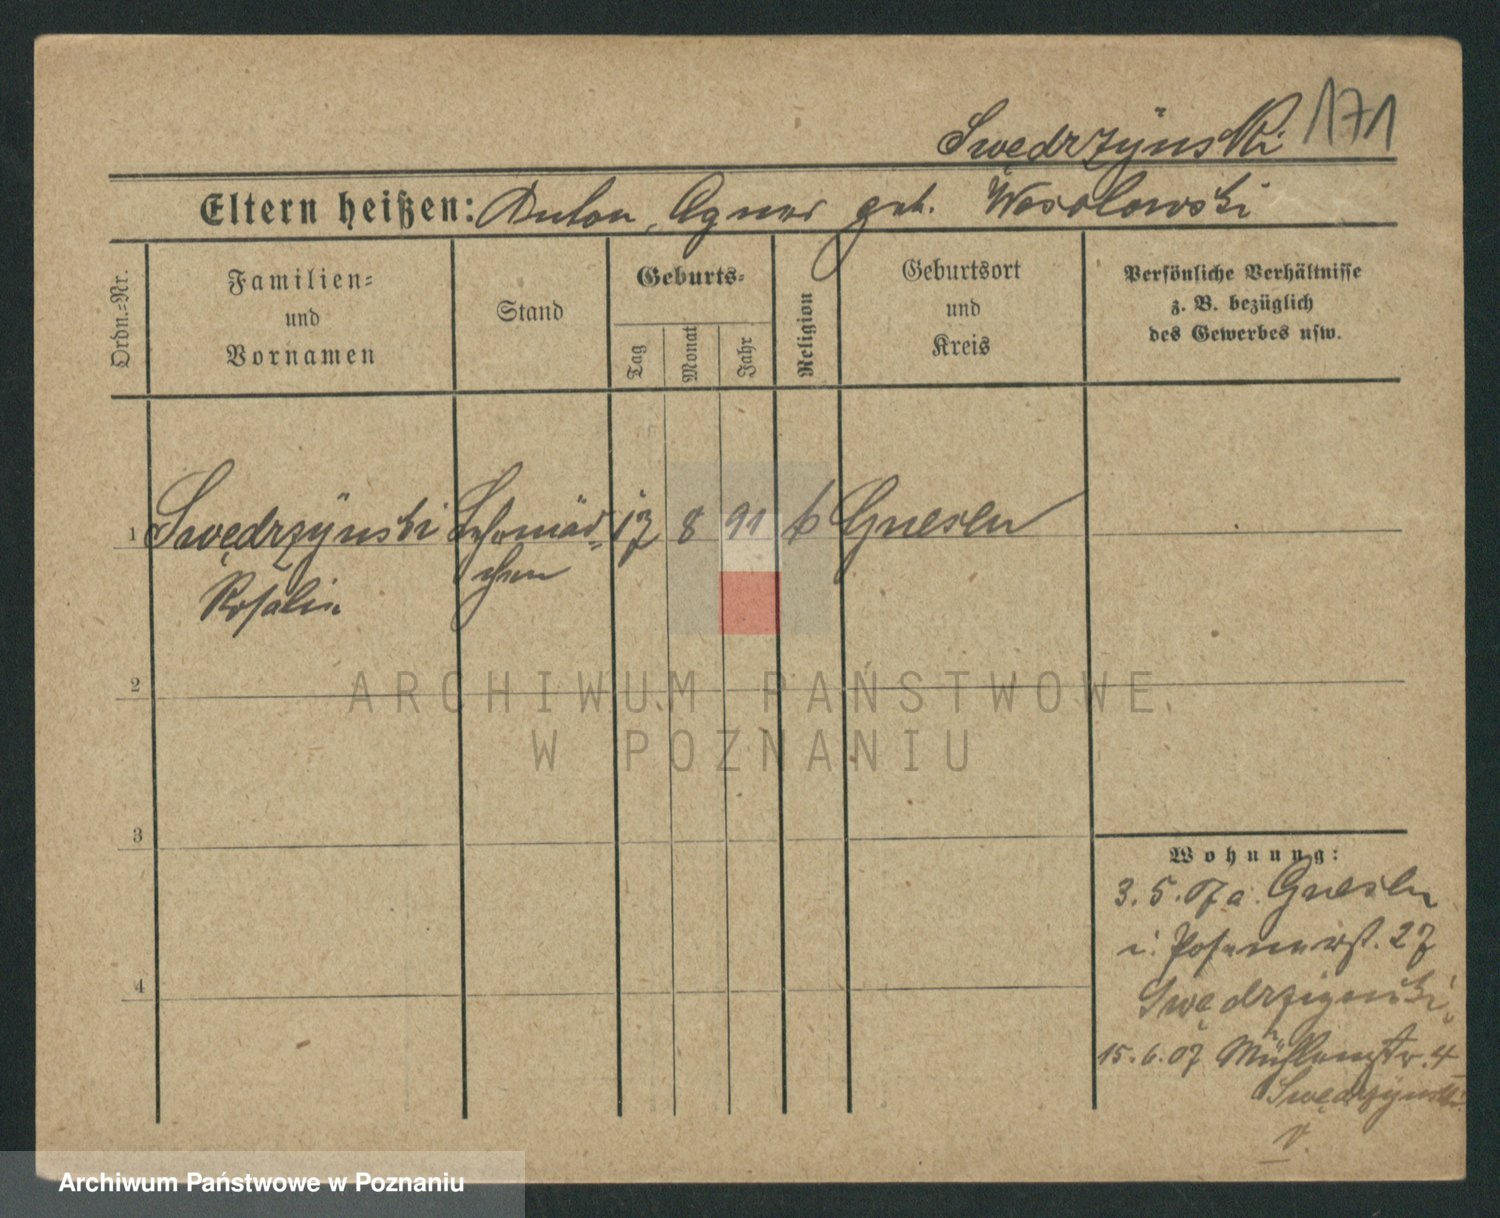 Swędrzynski 171
Eltern heißen: Anton, Agnes geb. Wesolowski
Ordn.-Nr.
Familien-
und
Vornamen
Stand
Geburts-
Tag
Monat
Jahr
Religion
Geburtsort
und
Kreis
Persönliche Verhältnisse
z. B. bezüglich
des Gewerbes usw.
1 Swędrzynski Lehrmäd- 17 8 91 k Gnesen
chen
Rosalie
2
ARCHIWUM PAŃSTWOWE
W POZNANIU
3
Wohnung:
3.5.07 a. Gnesen
i. Posenerst. 27
Swędrzynski
4
15.6.07 Mühlenstr. 4
Swędrzynski
v.
Archiwum Państwowe w Poznaniu